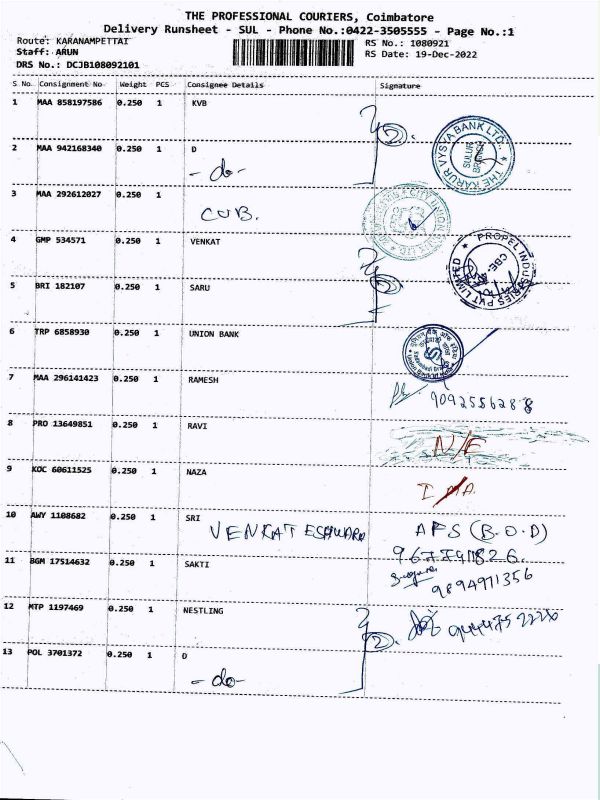 THE PROFESSIONAL COURIERS, Coimbatore
Delivery Runsheet - SUL - Phone No.:0422-3505555 - Page No.:1
Route: KARANAMPETTAI RS No.: 1080921
Staff: ARUN RS Date: 19-Dec-2022
DRS No.: DCJB108092101
S No Consignment No Weight PCS Consignee Details Signature
1 MAA 858197586 0.250 1 KVB
THE KARUR VYSYA BANK LTD. SULUR BRANCH
2 MAA 942168340 0.250 1 D
- do -
3 MAA 292612027 0.250 1
CUB.
4 GMP 534571 0.250 1 VENKAT
PROPEL INDUSTRIES PVT LIMITED CBE
5 BRI 182107 0.250 1 SARU
6 TRP 6858930 0.250 1 UNION BANK
7 MAA 296141423 0.250 1 RAMESH
9092556288
8 PRO 13649851 0.250 1 RAVI
N/E
9 KOC 60611525 0.250 1 NAZA
10 AWY 1108682 0.250 1 SRI
VENKATESHWARA AFS (B.O.D)
11 BGM 17514632 0.250 1 SAKTI
9894971356
12 MTP 1197469 0.250 1 NESTLING
13 POL 3701372 0.250 1 D
- do -